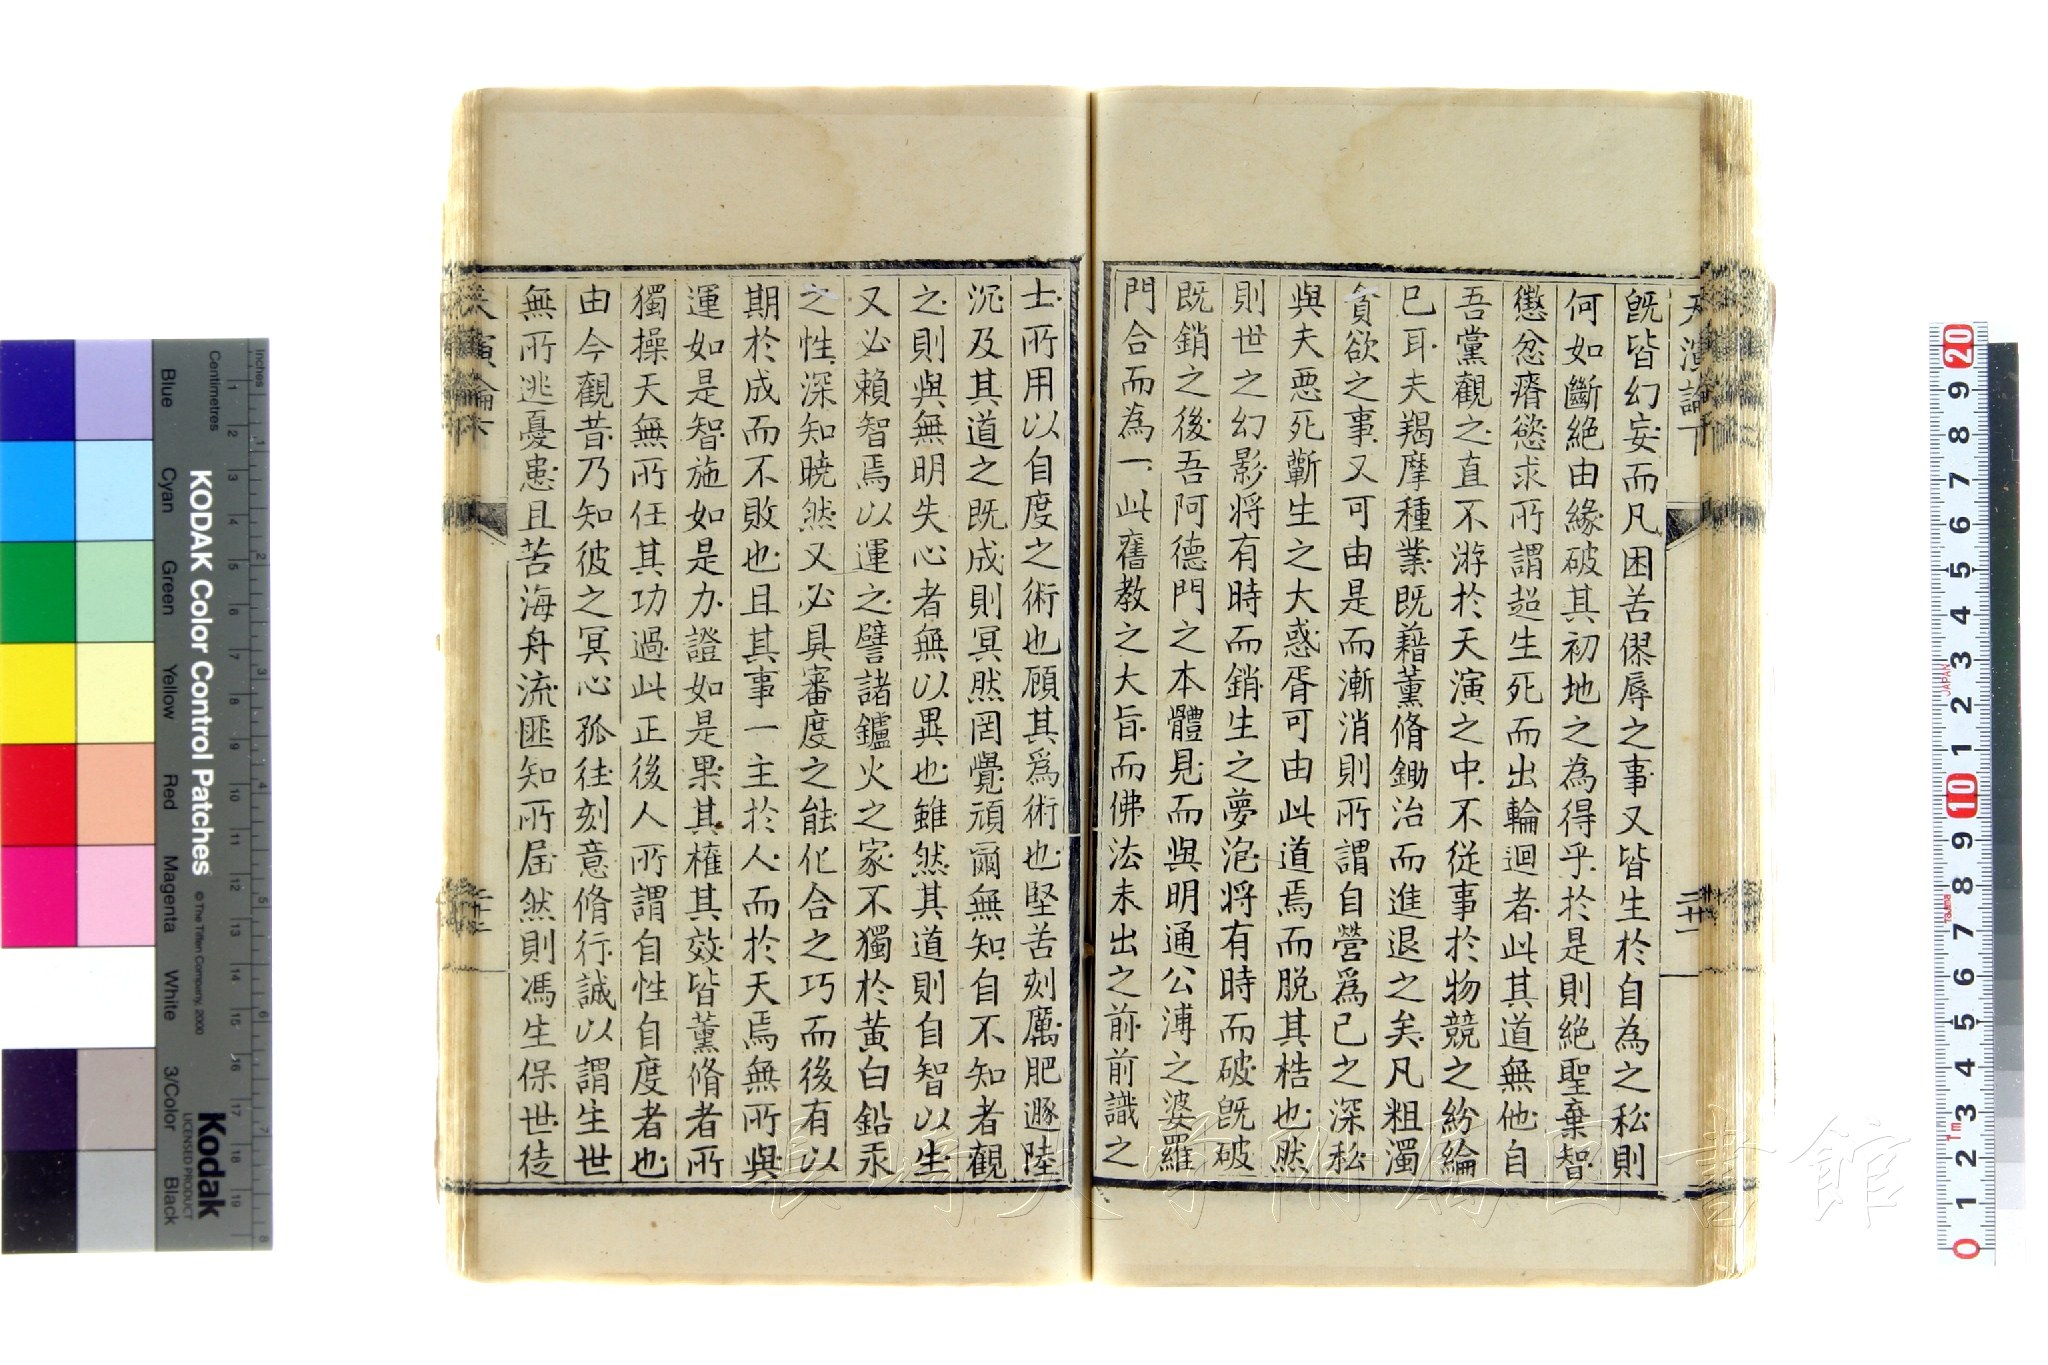 天演論下
二十一
既皆幻妄而凡困苦僇辱之事又皆生於自為之私則
何如斷絕由緣破其初地之為得乎於是則絕聖棄智
懲忿瘠慾求所謂超生死而出輪迴者此其道無他自
吾黨觀之直不游於天演之中不從事於物競之紛綸
已耳夫羯摩種業既藉薰脩鋤治而進退之矣凡粗濁
貪欲之事又可由是而漸消則所謂自營爲己之深私
與夫惡死蘄生之大惑胥可由此道焉而脱其梏也然
則世之幻影將有時而銷生之夢泡將有時而破既破
既銷之後吾阿德門之本體見而與明通公溥之婆羅
門合而為一此舊教之大旨而佛法未出之前前識之
士所用以自度之術也顧其爲術也堅苦刻厲肥遯陸
沉及其道之既成則冥然罔覺頑爾無知自不知者觀
之則與無明失心者無以異也雖然其道則自智以生
又必賴智焉以運之譬諸鑪火之家不獨於黃白鉛汞
之性深知曉然又必具審度之能化合之巧而後有以
期於成而不敗也且其事一主於人而於天焉無所與
運如是智施如是力證如是果其權其效皆薰脩者所
獨操天無所任其功過此正後人所謂自性自度者也
由今觀昔乃知彼之冥心孤往刻意脩行誠以謂生世
無所逃憂患且苦海舟流匪知所屆然則馮生保世徒
KODAK Color Control Patches
© The Tiffen Company, 2000
Kodak
LICENSED PRODUCT
Inches
Centimetres
Blue
Cyan
Green
Yellow
Red
Magenta
White
3/Color
Black
長崎大学附属図書館
JAPAN